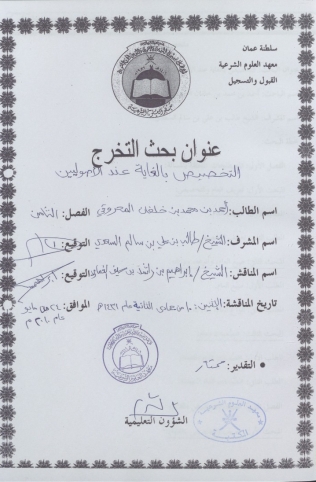 سلطنة عمان
معهد العلوم الشرعية
القبول والتسجيل
عنوان بحث التخرج
التخصيص بالغاية عند الأصوليين
اسم الطالب: أحمد بن محمد بن خلفان المحروقي الفصل: الثامن
اسم المشرف: الشيخ/ طالب بن علي بن سالم السعدي التوقيع:
اسم المناقش: الشيخ/ إبراهيم بن راشد بن سيف الغماري التوقيع:
تاريخ المناقشة: الإثنين: جمادى الثانية عام ١٤٣١هـ الموافق: مايو
عام ٢٠١٠م
التقدير: ممتاز
الشؤون التعليمية